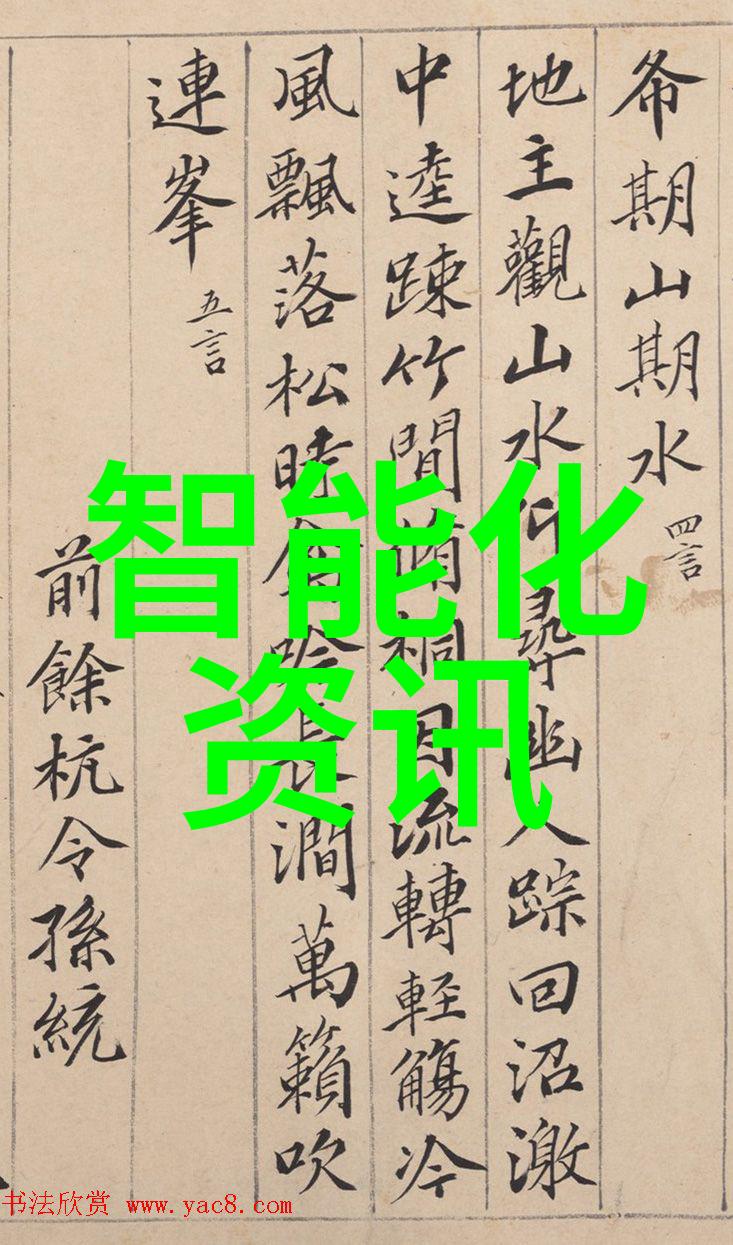 希期山期水 四言
地主觀山水仰尋幽人踪回沼激
中逵踈竹間脩桐因流轉輕觴冷
風飄落松時禽吟長澗萬籟吹
連峯 五言
前餘杭令孫統
智能化
资讯
书法欣赏 www.yac8.com